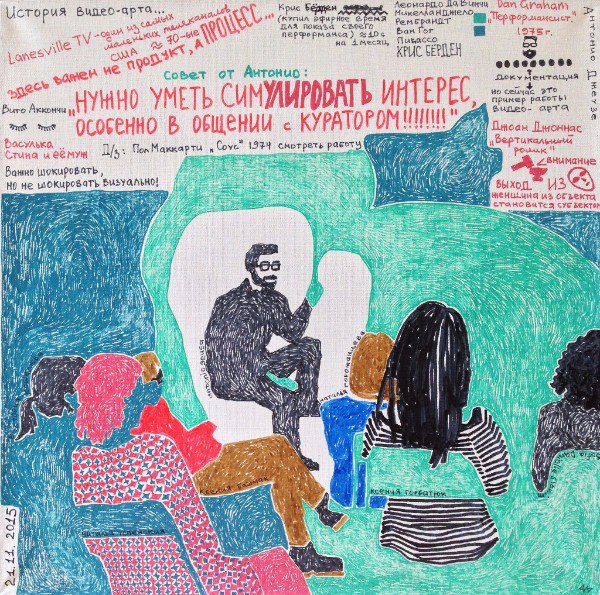 История видео-арта...
Lanesville TV - один из самых
маленьких телеканалов
США ≈ 70-ые
Здесь важен не продукт, а ПРОЦЕСС...
Крис Бёрден
(купил эфирное время
для показа своего
перформанса) ≈ 10с
на 1 месяц
Леонардо Да Винчи
Микеланджело
Рембрандт
Ван Гог
Пикассо
КРИС БЁРДЕН
Dan Graham
"Перформансист"
1975г.
документация
но сейчас это
пример работы
видео-арта
Антонио Джеузе
Совет от Антонио:
"НУЖНО УМЕТЬ СИМУЛИРОВАТЬ ИНТЕРЕС,
ОСОБЕННО В ОБЩЕНИИ с КУРАТОРОМ!!!!!!!!"
Вито Аккончи
Васулька
Стина и её муж
Д/з: Пол Маккарти „Соус" 1974 смотреть работу
Важно шокировать,
но не шокировать визуально!
Джоан Джоннас
"Вертикальный
ролик"
внимание
ВЫХОД ИЗ
женщина из объекта
становится субъектом
ксения горбатюк
21.11.2015